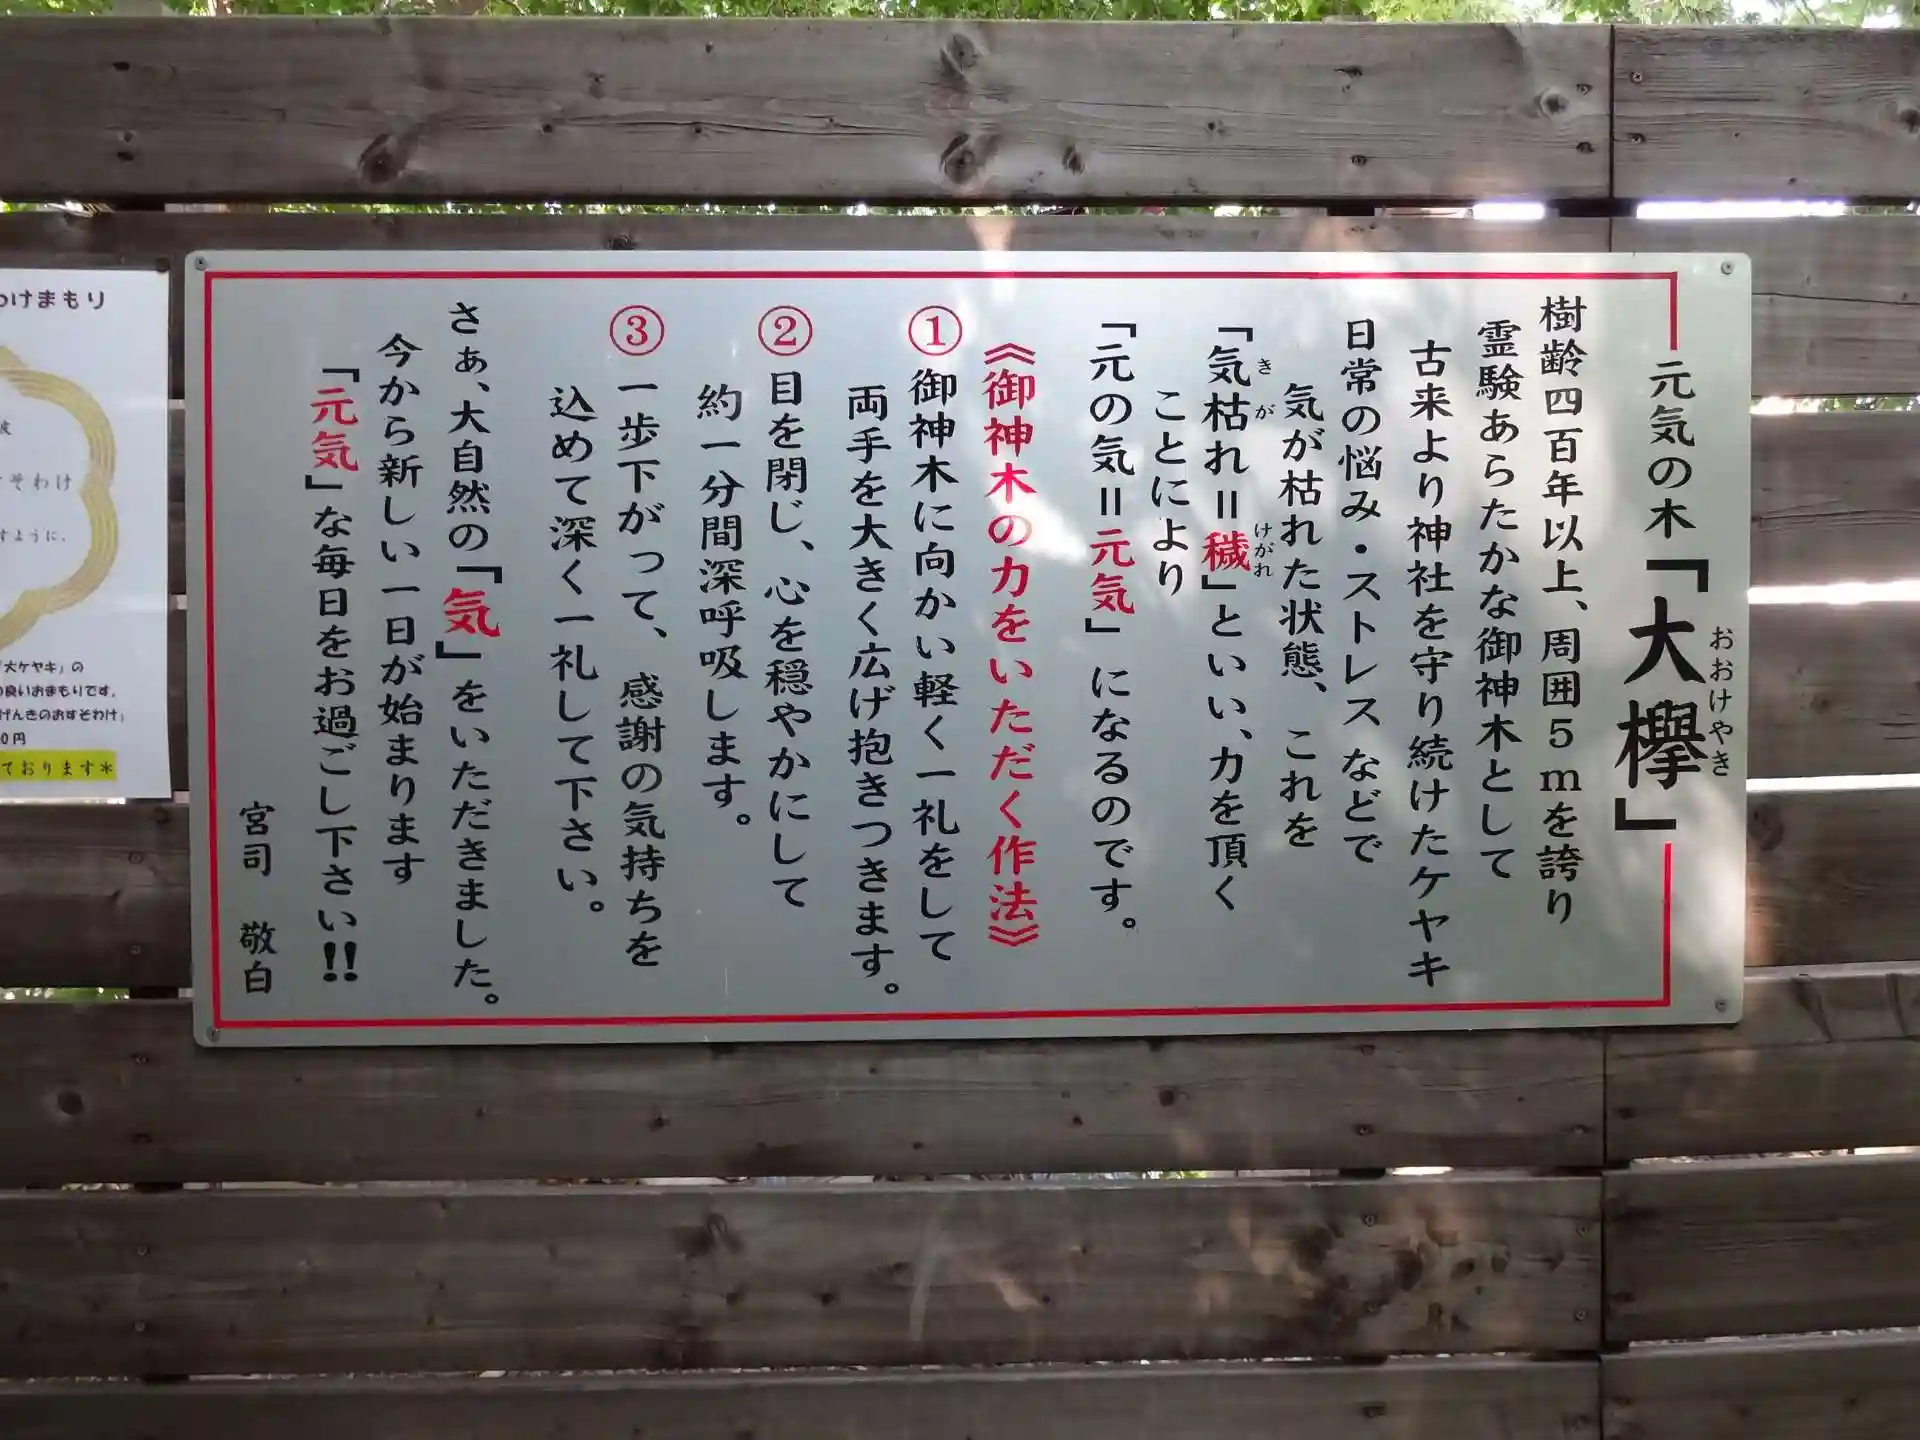 元気の木「大欅」
おおけやき
樹齢四百年以上、周囲5mを誇り
霊験あらたかな御神木として
古来より神社を守り続けたケヤキ
日常の悩み・ストレスなどで
気が枯れた状態、これを
「気枯れ=穢」といい、力を頂く
きが
けがれ
ことにより
「元の気=元気」になるのです。
《御神木の力をいただく作法》
①御神木に向かい軽く一礼をして
両手を大きく広げ抱きつきます。
②目を閉じ、心を穏やかにして
約一分間深呼吸します。
③一歩下がって、感謝の気持ちを
込めて深く一礼して下さい。
さぁ、大自然の「気」をいただきました。
今から新しい一日が始まります
「元気」な毎日をお過ごし下さい!!
宮司 敬白
わけまもり
波
そわけ
すように、
「大ケヤキ」の
の良いおまもりです。
げんきのおすそわけ」
0円
ております*